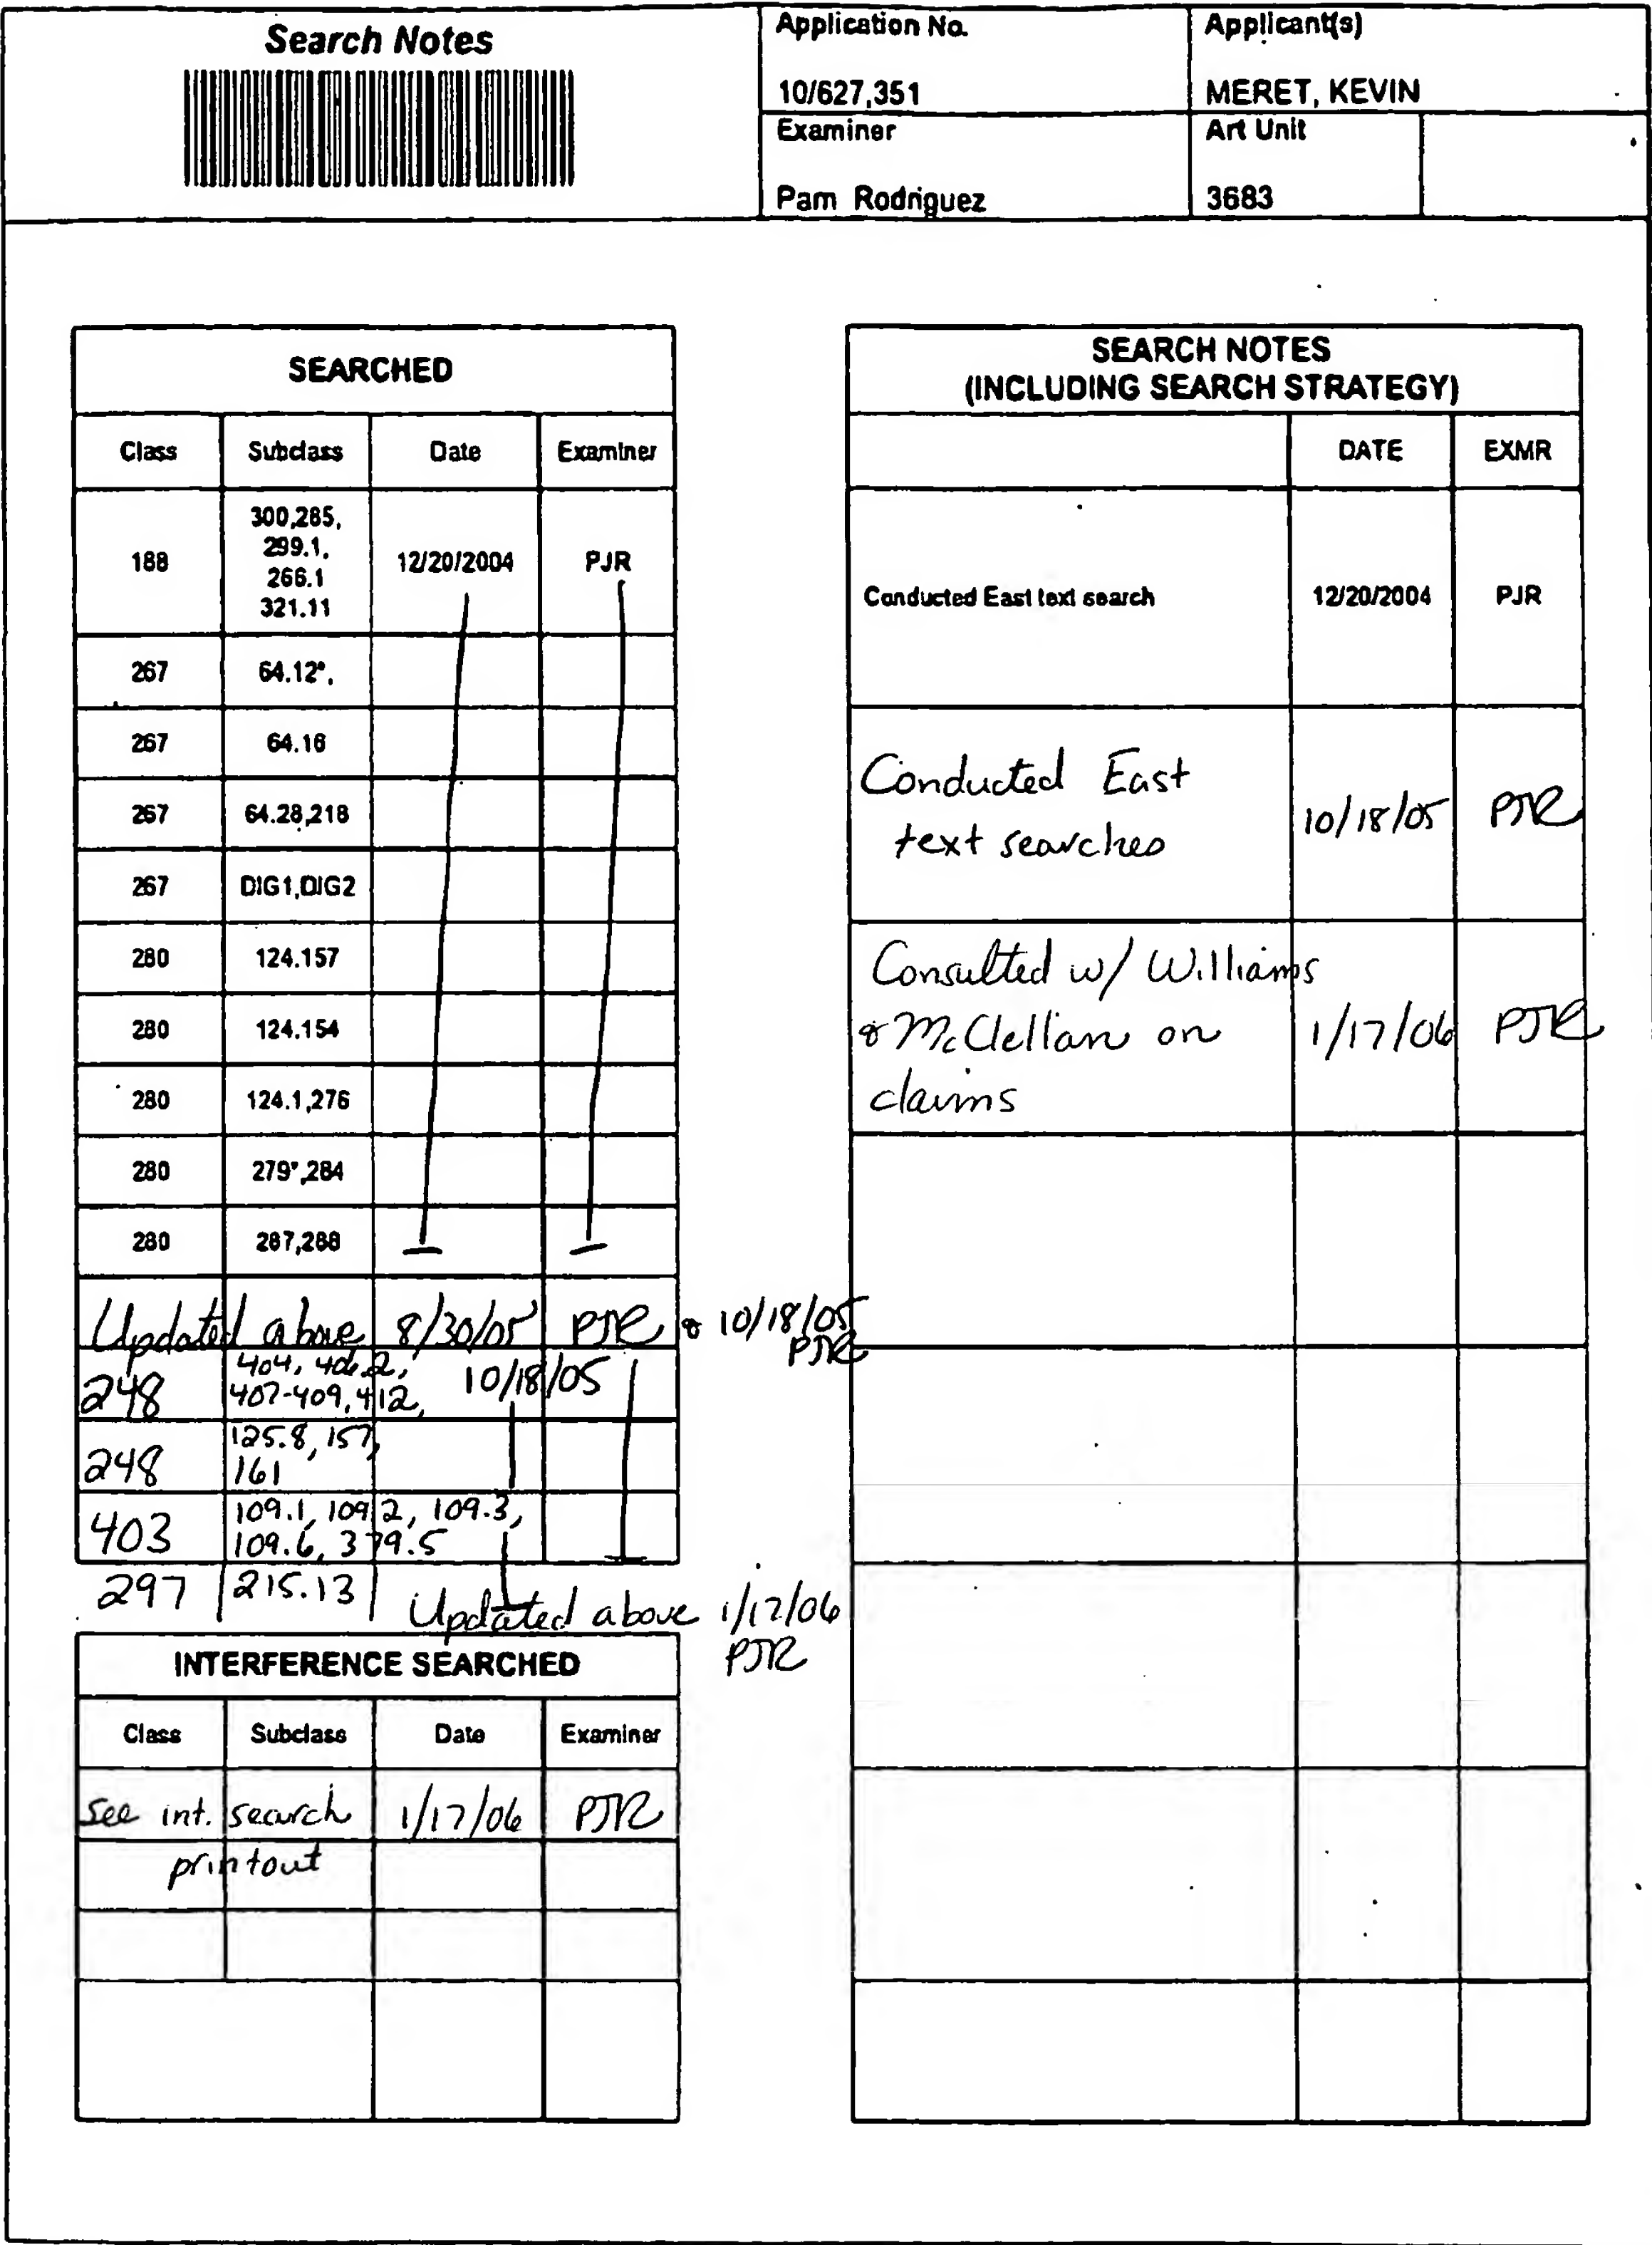 Search Notes
Application No.
10/627,351
Applicant(s)
MERET, KEVIN
Examiner
Pam Rodriguez
Art Unit
3683
SEARCHED
Class Subclass Date Examiner
188 300,285, 12/20/2004 PJR
299.1,
266.1
321.11
267 64.12*,
267 64.16
267 64.28,218
267 DIG1,DIG2
280 124.157
280 124.154
280 124.1,276
280 279*,284
280 287,288
Updated above 8/30/05 PJR & 10/18/05
PJR
248 404, 406.2, 10/18/05
407-409, 412,
248 125.8, 157,
161
403 109.1, 109.2, 109.3,
109.6, 379.5
297 215.13
Updated above 1/17/06
PJR
INTERFERENCE SEARCHED
Class Subclass Date Examiner
See int. search 1/17/06 PJR
printout
SEARCH NOTES
(INCLUDING SEARCH STRATEGY)
DATE EXMR
Conducted East text search 12/20/2004 PJR
Conducted East
text searches 10/18/05 PJR
Consulted w/ Williams
& McClellan on 1/17/06 PJR
claims